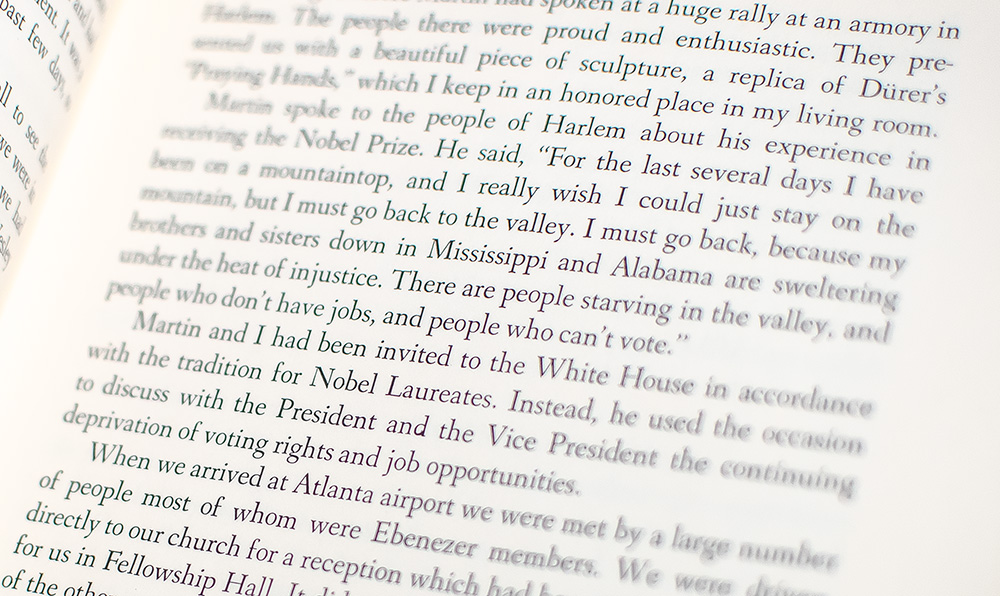 ent. It was
and
past few days, a
all to see the
we were
we had
Martin had spoken at a huge rally at an armory in
Harlem. The people there were proud and enthusiastic. They pre-
sented us with a beautiful piece of sculpture, a replica of Dürer's
"Praying Hands," which I keep in an honored place in my living room.
Martin spoke to the people of Harlem about his experience in
receiving the Nobel Prize. He said, "For the last several days I have
been on a mountaintop, and I really wish I could just stay on the
mountain, but I must go back to the valley. I must go back, because my
brothers and sisters down in Mississippi and Alabama are sweltering
under the heat of injustice. There are people starving in the valley, and
people who don't have jobs, and people who can't vote."
Martin and I had been invited to the White House in accordance
with the tradition for Nobel Laureates. Instead, he used the occasion
to discuss with the President and the Vice President the continuing
deprivation of voting rights and job opportunities.
When we arrived at Atlanta airport we were met by a large number
of people most of whom were Ebenezer members. We were driven
directly to our church for a reception which had
for us in Fellowship Hall. It
of the other